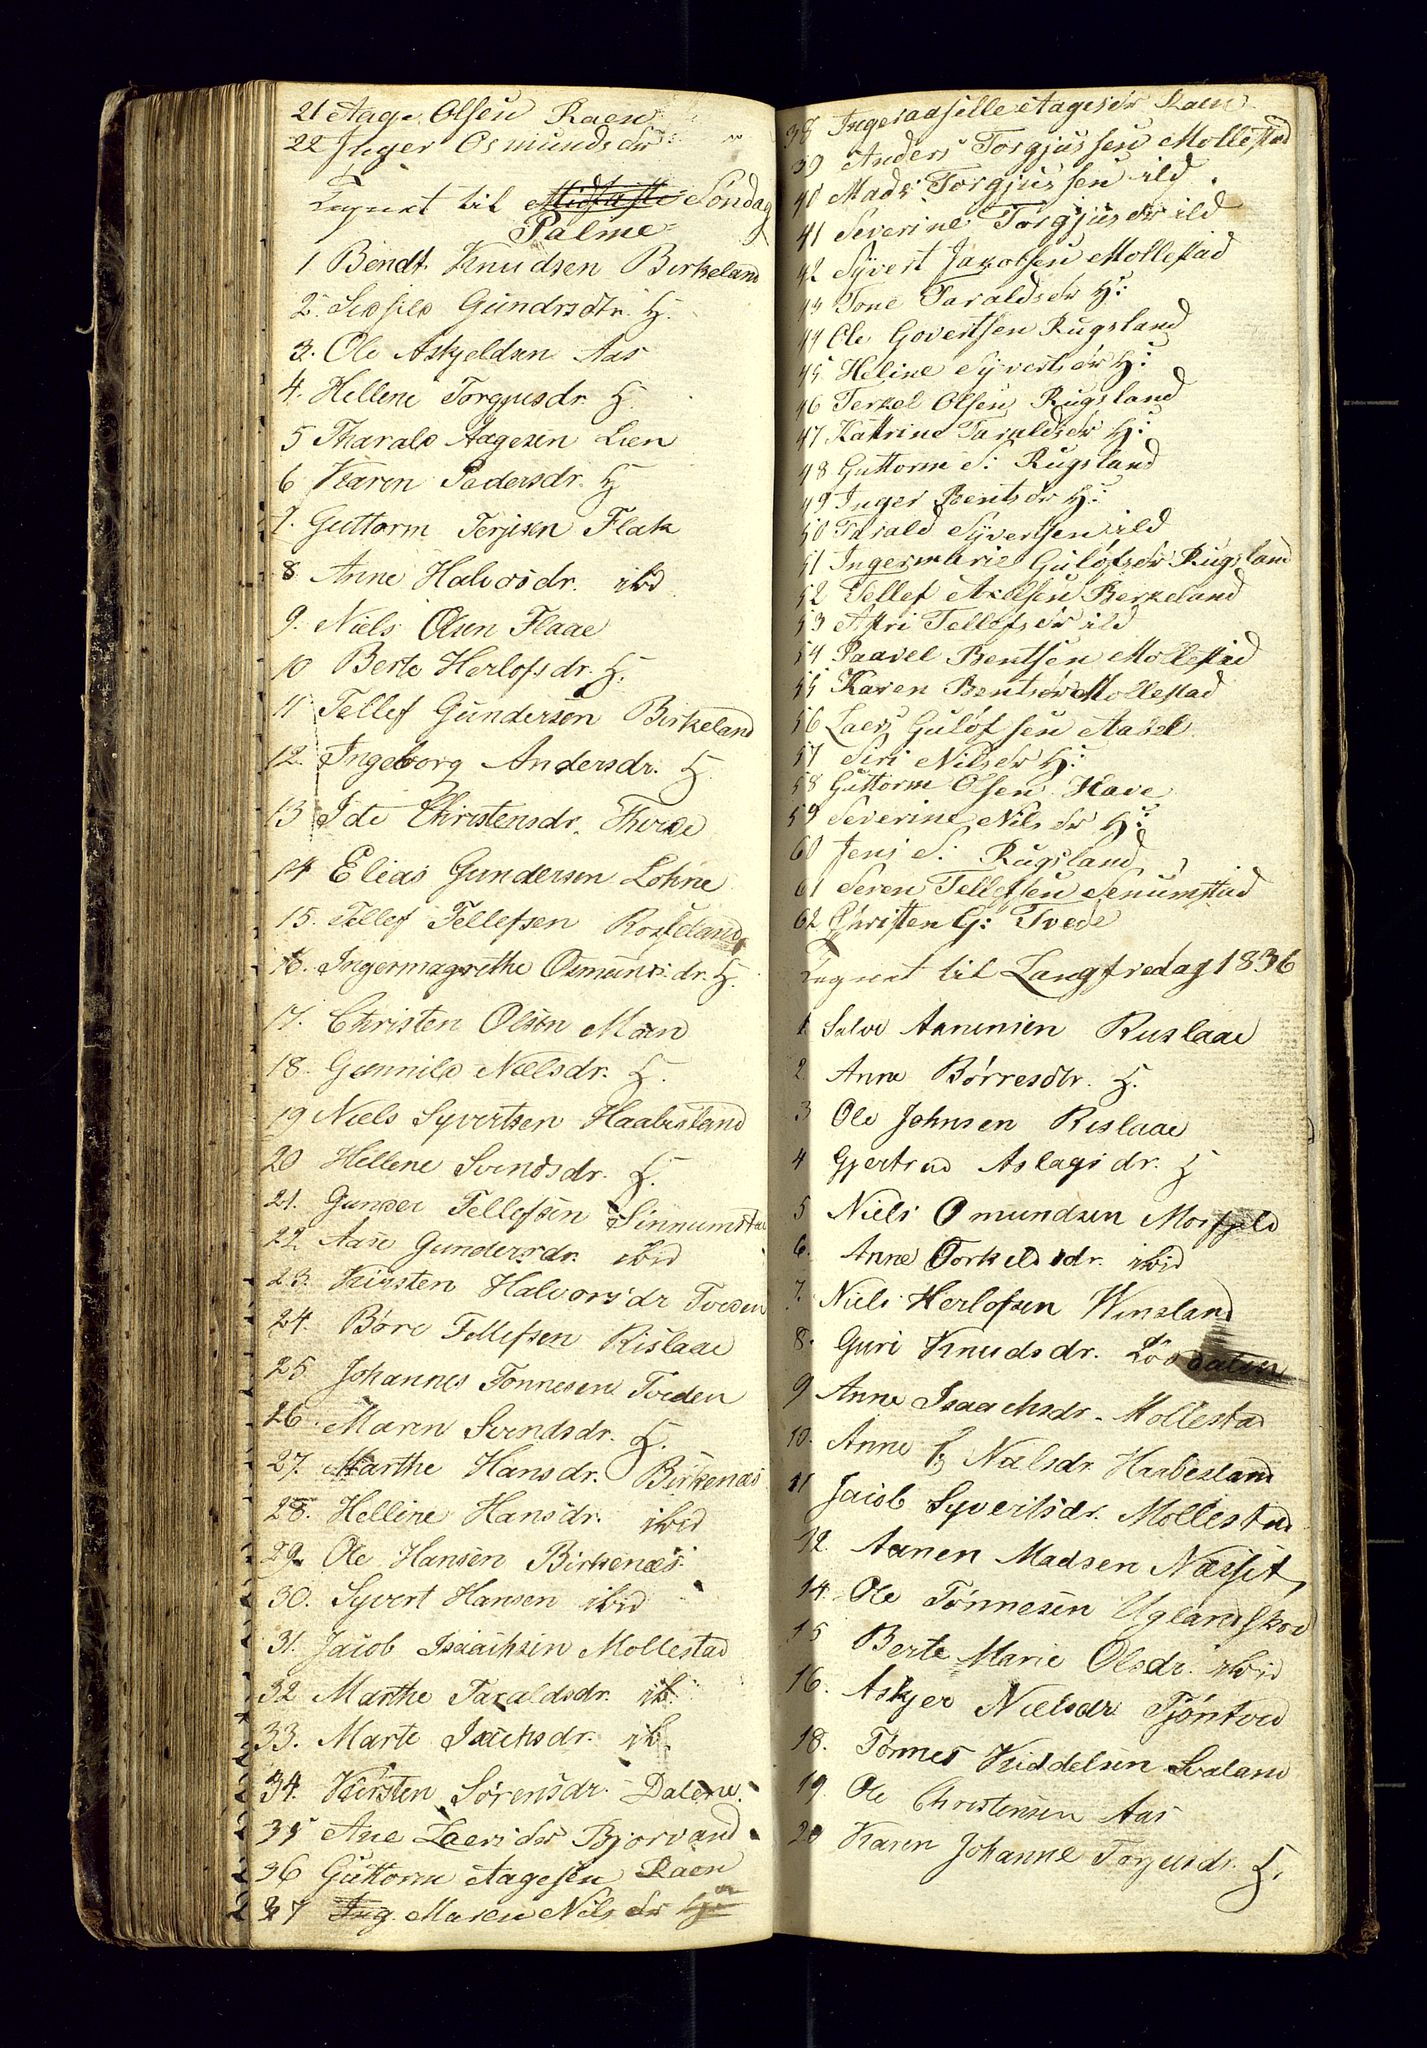 21 Aage Olsen Raen
22 Inger Osmundsdr
Tegnet til Midfaste Søndag
Palme
1 Bendt Knudsen Birkeland
2. Gundrsdtr. H.
3. Ole Askjeldsen Aas
4. Hellene Torgjusdr. H.
5 Tharald Aagesen Lien
6 Karen Pedersdr. H
7. Guttorm Terjisen Flak
8 Anne Halvorsdr. ibid
9. Niels Olsen Flaae
10 Berte Herlofsdr. H.
11 Tellef Gundersen Birkeland
12. Ingeborg Andersdr. H.
13 Ide Christensdr. Thvede
14 Elias Gundersen Lohne
15. Tellef Tellefsen Rosseland
16. Ingermagrethe Osmundsdr. H.
17. Christen Olsen Moen
18. Gunnild Nielsdr. H.
19 Niels Syvertsen Haabesland
20 Hellene Svendsdr. H.
21. Gunder Tellefsen Sinnumstad
22. Aase Gundersdr. ibid
23. Kirsten Halvorsdr Tveden
24. Børe Tellefsen Rislaae
25. Johannes Tønnesen Tveden
26. Maren Svendsdr. H.
27. Marthe Hansdr. Birkenæs
28. Helline Hansdr. ibid
29. Ole Hansen Birkenæs
30. Syvert Hansen ibid
31. Jacob Isaachsen Mollestad
32 Marthe Taraldsdr. ib.
33. Marte Isachsdr. ib.
34. Kirsten Sørensdr. Dalene.
35 Ane Laersdr Bjorvand
36 Guttorm Aagesen Raen
37 Ing. Maren Nilsdr H:
38 Aagesdr Raen
39 Anders Torgjussen Mollestad
40 Mads Torgjussen ibd
41 Severine Torgjusdr ibd
42 Syvert Jacobsen Mollestad
43 Tone Taraldsdr H:
44 Ole Govertsen Rugsland
45 Heline Syvertsdr H:
46 Terkel Olsen Rugsland
47 Katrine Taraldsdr H:
48 Guttorm S: Rugsland
49 Inger Bentsdr H:
50 Tarald Syvertsen ibd
51 Ingermarie Gulofsdr Rugsland
52 Tellef Berkeland
53 Astri Tellefsdr ibd
54 Paavel Bentsen Mollestad
55 Karen Bentsdr Mollestad
56 Laers Gulofsen Aabel
57 Siri Nilsdr H:
58 Guttorm Olsen Have
59 Severine Nilsdr H:
60 Jens S: Rugsland
61 Seren Tellefsen Senumstad
62 Christen G: Tvede
Tegnet til Langfredag 1836
1 Salve Aanensen Ruslaae
2. Anne Børresdtr. H.
3 Ole Johnsen Rislaae
4 Gjertrud Aslagsdr. H
5 Niels Omundsen Mosfjeld
6. Anne Torkildsdr. ibid
7. Niels Herlofsen Winsland
8. Guri Knudsdr. Lösdalen
9 Anne Isaachsdr. Mollestad
10. Anne Nielsdr. Haabesland
11 Jacob Syvertsdr. Mollestad
12. Aanen Madsen
14. Ole Tønnesen Uglandskov
15 Berte Marie Olsdr. ibid
16. Askjer Nielsdr Tjøntved
18. Tønnes Kiddelsen Svaland
19. Ole Christensen Aas
20 Karen Johanne Torjusdr. H.